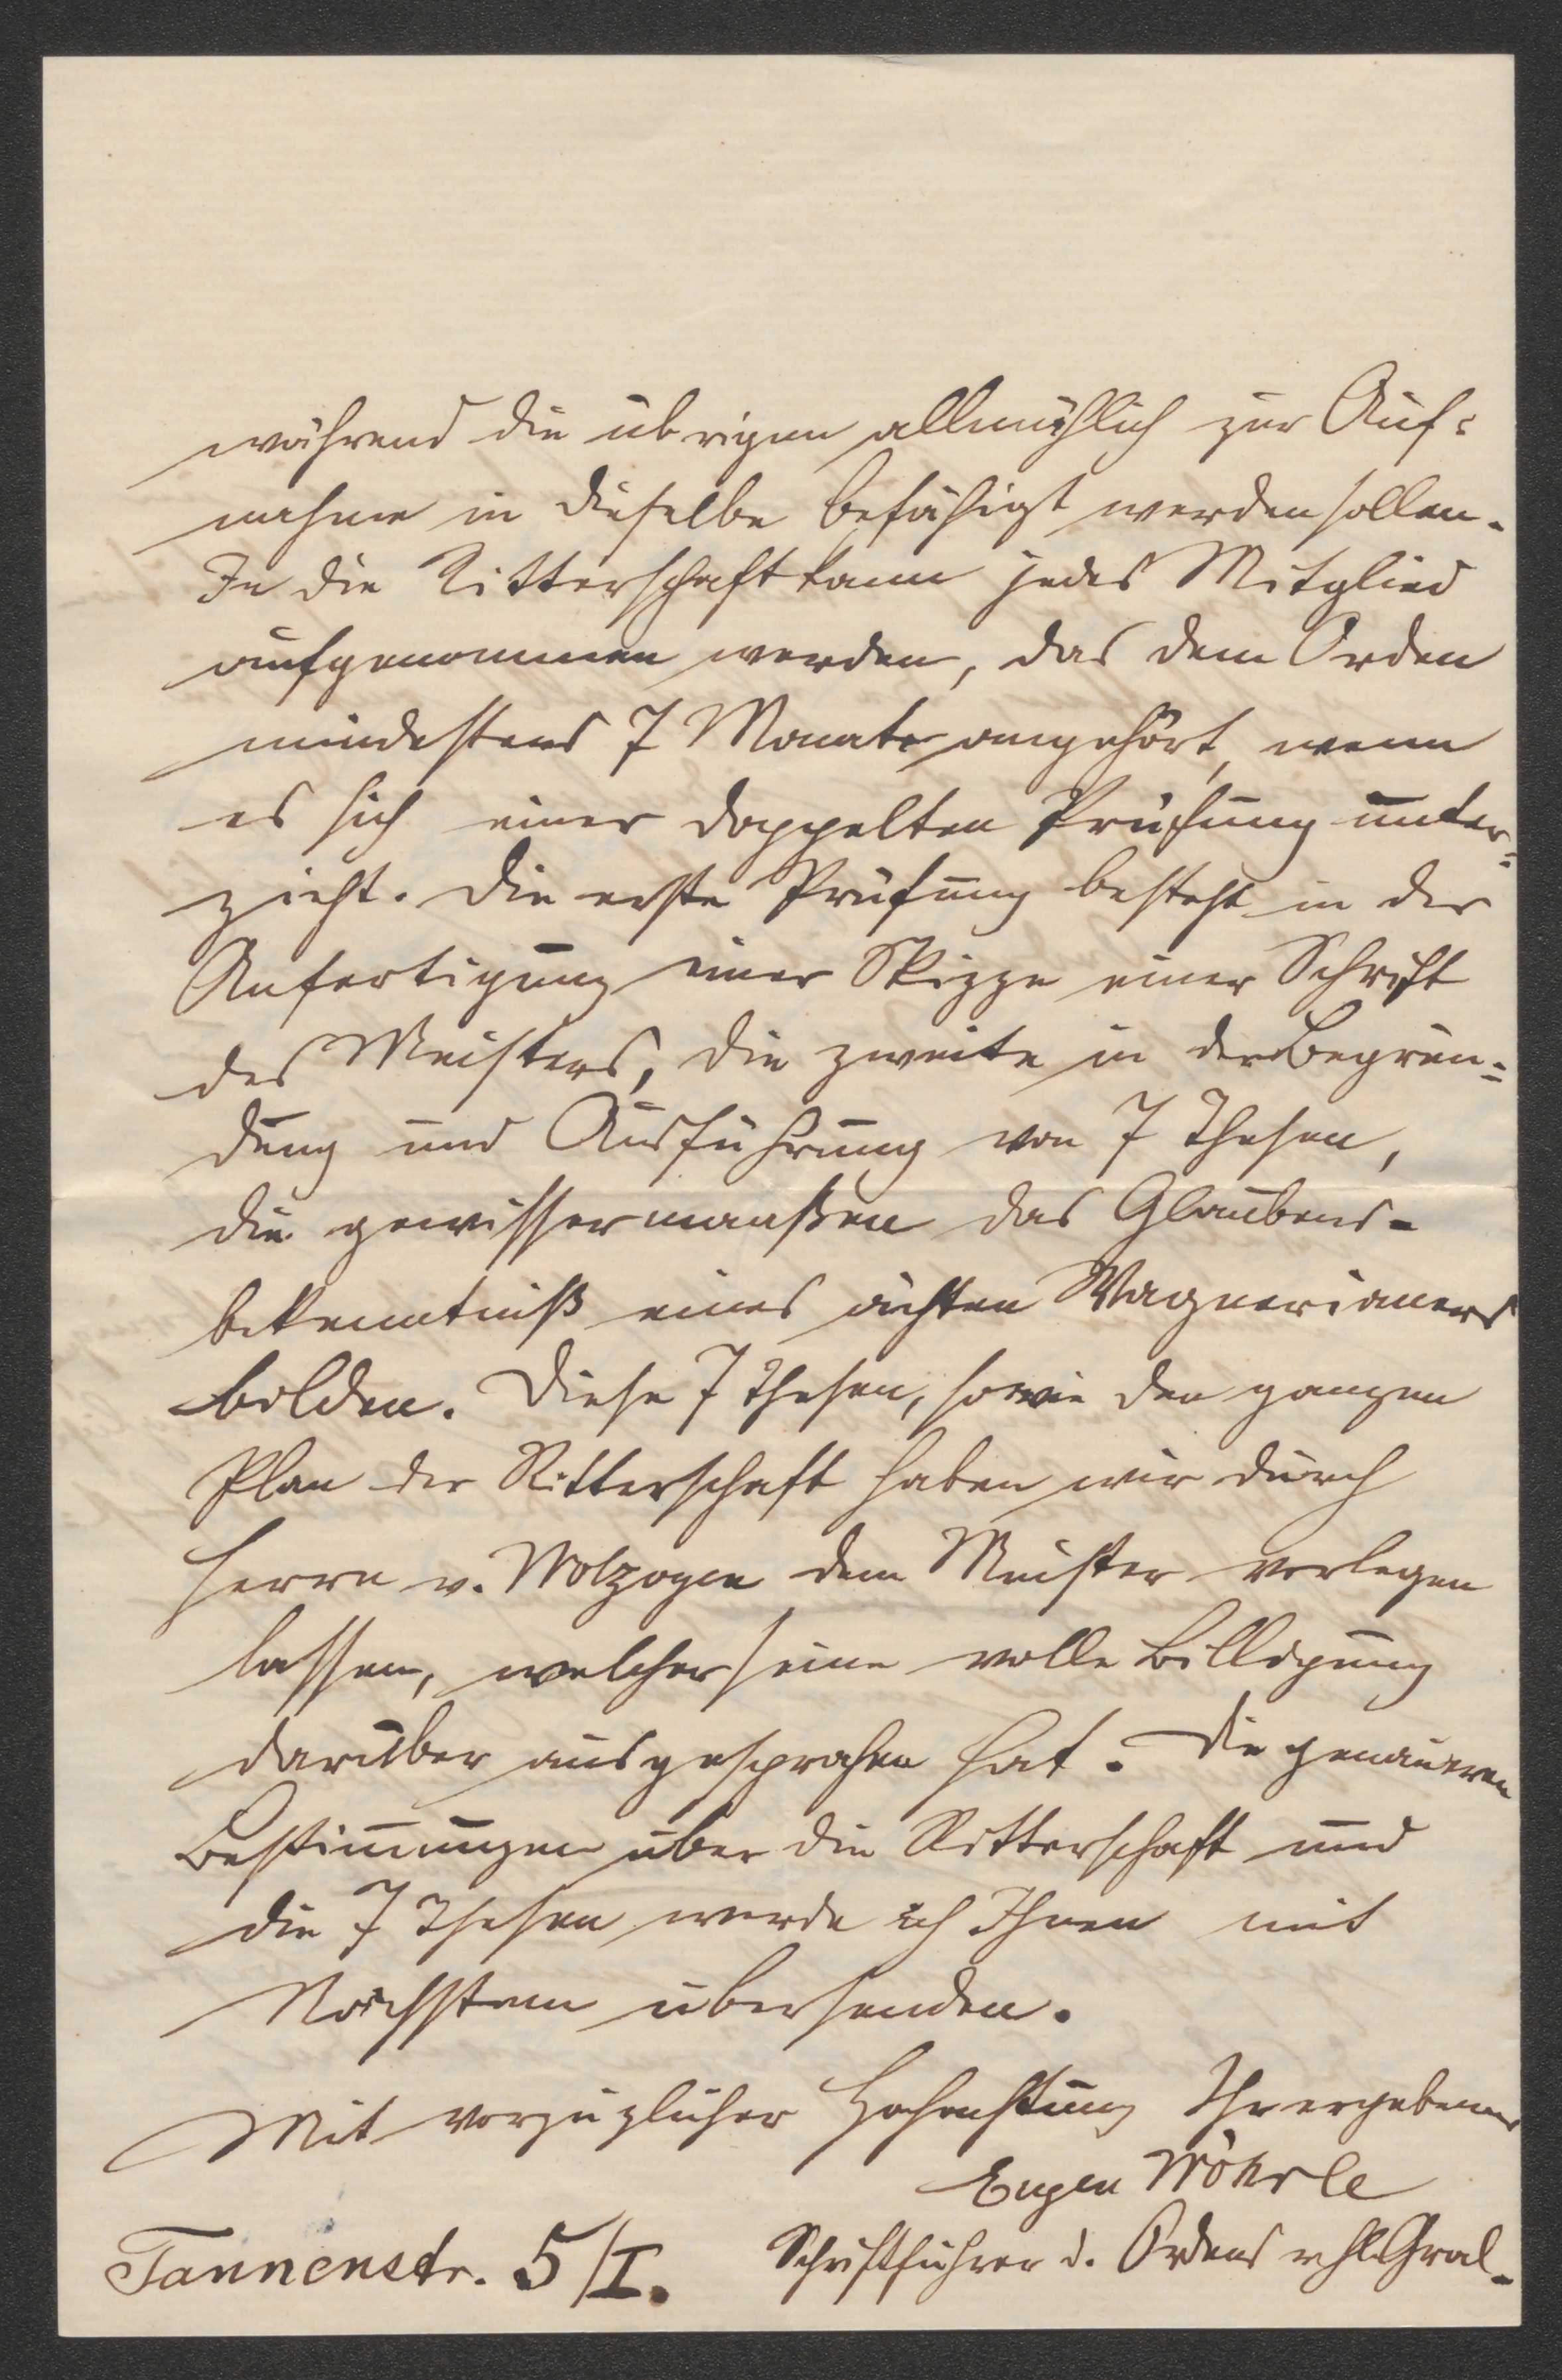 während die übrigen allmählich zur Auf=
nahme in dieselbe befähigt werden sollen.
In die Ritterschaft kann jedes Mitglied
aufgenommen werden, das dem Orden
mindestens 7 Monate angehört, wenn
es sich einer doppelten Prüfung unter=
zieht. Die erste Prüfung besteht in der
Anfertigung einer Skizze einer Schrift
des Meisters, die zweite in der Begrün=
dung und Ausführung von 7 Thesen,
die gewissermaaßen das Glaubens-
bekenntniß eines ächten Wagnerianers
bilden. Diese 7 Thesen, sowie den ganzen
Plan der Ritterschaft haben wir durch
Herrn v. Wolzogen dem Meister vorlegen
lassen, welcher seine volle Billigung
darüber ausgesprochen hat. Die genaueren
Bestimmungen über die Ritterschaft und
die 7 Thesen werde ich Ihnen mit
Nächstem übersenden.
Mit vorzüglicher Hochachtung Ihr ergebener
Eugen Wöhrle
Tannenstr. 5/I. Schriftführer d. Ordens v hl. Gral.